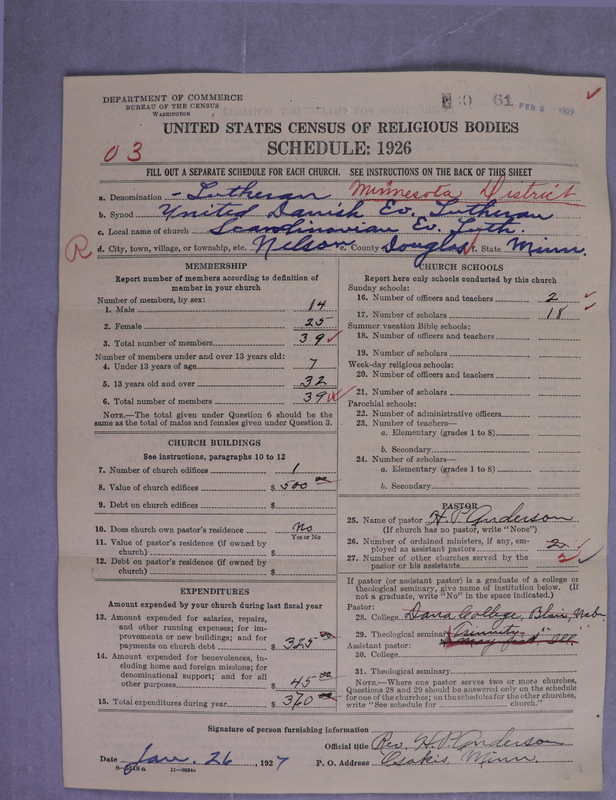 DEPARTMENT OF COMMERCE
BUREAU OF THE CENSUS
WASHINGTON
61 FEB 9 1927
UNITED STATES CENSUS OF RELIGIOUS BODIES
SCHEDULE: 1926
03
FILL OUT A SEPARATE SCHEDULE FOR EACH CHURCH. SEE INSTRUCTIONS ON THE BACK OF THIS SHEET
a. Denomination - Lutheran Minnesota District
b. Synod United Danish Ev. Lutheran
c. Local name of church Scandinavian Ev. Luth.
R d. City, town, village, or township, etc. Nelson e. County Douglas f. State Minn.
MEMBERSHIP
Report number of members according to definition of
member in your church
Number of members, by sex:
1. Male 14
2. Female 25
3. Total number of members 39
Number of members under and over 13 years old:
4. Under 13 years of age 7
5. 13 years old and over 32
6. Total number of members 39
NOTE.—The total given under Question 6 should be the
same as the total of males and females given under Question 3.
CHURCH BUILDINGS
See instructions, paragraphs 10 to 12
7. Number of church edifices 1
8. Value of church edifices $ 500 00
9. Debt on church edifices $
10. Does church own pastor's residence No
Yes or No
11. Value of pastor's residence (if owned by
church) $
12. Debt on pastor's residence (if owned by
church) $
EXPENDITURES
Amount expended by your church during last fiscal year
13. Amount expended for salaries, repairs,
and other running expenses; for im-
provements or new buildings; and for
payments on church debt $ 325 00
14. Amount expended for benevolences, in-
cluding home and foreign missions; for
denominational support; and for all
other purposes $ 45 00
15. Total expenditures during year $ 370 00
CHURCH SCHOOLS
Report here only schools conducted by this church
Sunday schools:
16. Number of officers and teachers 2
17. Number of scholars 18
Summer vacation Bible schools:
18. Number of officers and teachers
19. Number of scholars
Week-day religious schools:
20. Number of officers and teachers
21. Number of scholars
Parochial schools:
22. Number of administrative officers
23. Number of teachers—
a. Elementary (grades 1 to 8)
b. Secondary
24. Number of scholars—
a. Elementary (grades 1 to 8)
b. Secondary
PASTOR
25. Name of pastor H. P. Anderson
(If church has no pastor, write "None")
26. Number of ordained ministers, if any, em-
ployed as assistant pastors
27. Number of other churches served by the
pastor or his assistants 2
If pastor (or assistant pastor) is a graduate of a college or
theological seminary, give name of institution below. (If
not a graduate, write "No" in the space indicated.)
Pastor:
28. College Dana College, Blair, Neb.
29. Theological seminary Trinity
Assistant pastor:
30. College
31. Theological seminary
NOTE.—Where one pastor serves two or more churches,
Questions 28 and 29 should be answered only on the schedule
for one of the churches; on the schedules for the other churches,
write "See schedule for church."
Signature of person furnishing information
Official title Rev. H. P. Anderson
Date Jan. 26, 1927 P. O. Address Osakis, Minn.